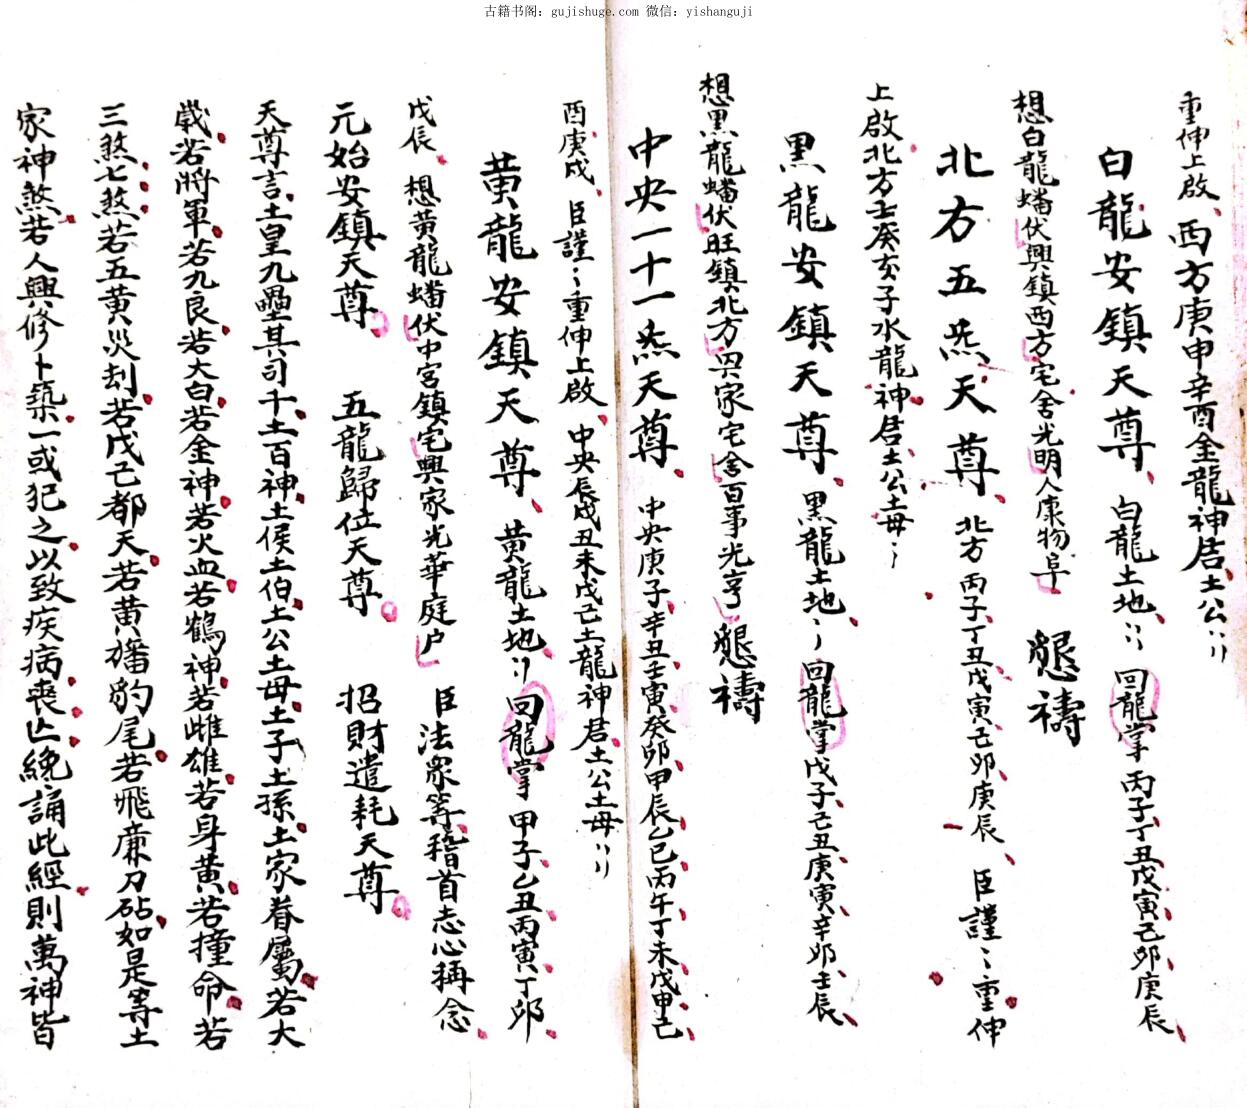 古籍书阁：gujishuge.com 微信：yishanguji
重伸上啟西方庚申辛酉金龍神居土公〻
白龍安鎮天尊 白龍土地〻 回龍掌 丙子丁丑戊寅己卯庚辰
想白龍蟠伏興鎮西方宅舍光明人康物阜 懇禱
北方五炁天尊 北方 丙子丁丑戊寅己卯庚辰 臣謹〻重伸
上啟北方壬癸亥子水龍神居土公土母〻
黑龍安鎮天尊 黑龍土地〻 回龍掌 戊子己丑庚寅辛卯壬辰
想黑龍蟠伏旺鎮北方 家宅舍百事光亨 懇禱
中央一十一炁天尊 中央庚子辛丑壬寅癸卯甲辰乙巳丙午丁未戊申己
酉庚戌 臣謹〻重伸上啟 中央辰戌丑未戊己土龍神君土公土母〻
黄龍安鎮天尊 黄龍土地〻 回龍掌 甲子乙丑丙寅丁卯
戊辰 想黄龍蟠伏中宫鎮宅興家光華庭户 臣法眾等稽首志心稱念
元始安鎮天尊 五龍歸位天尊 招財遣耗天尊
天尊言土皇九壘其司千土百神土侯土伯土公土母土子土孫土家眷屬若大
歲若將軍若九良若大白若金神若火血若鶴神若雌雄若身黄若撞命若
三煞七煞若五黄災刦若戊己都天若黄旛豹尾若飛廉刀砧如是等土
家神煞若人興修卜築一或犯之以致疾病喪亡纔誦此經則萬神皆